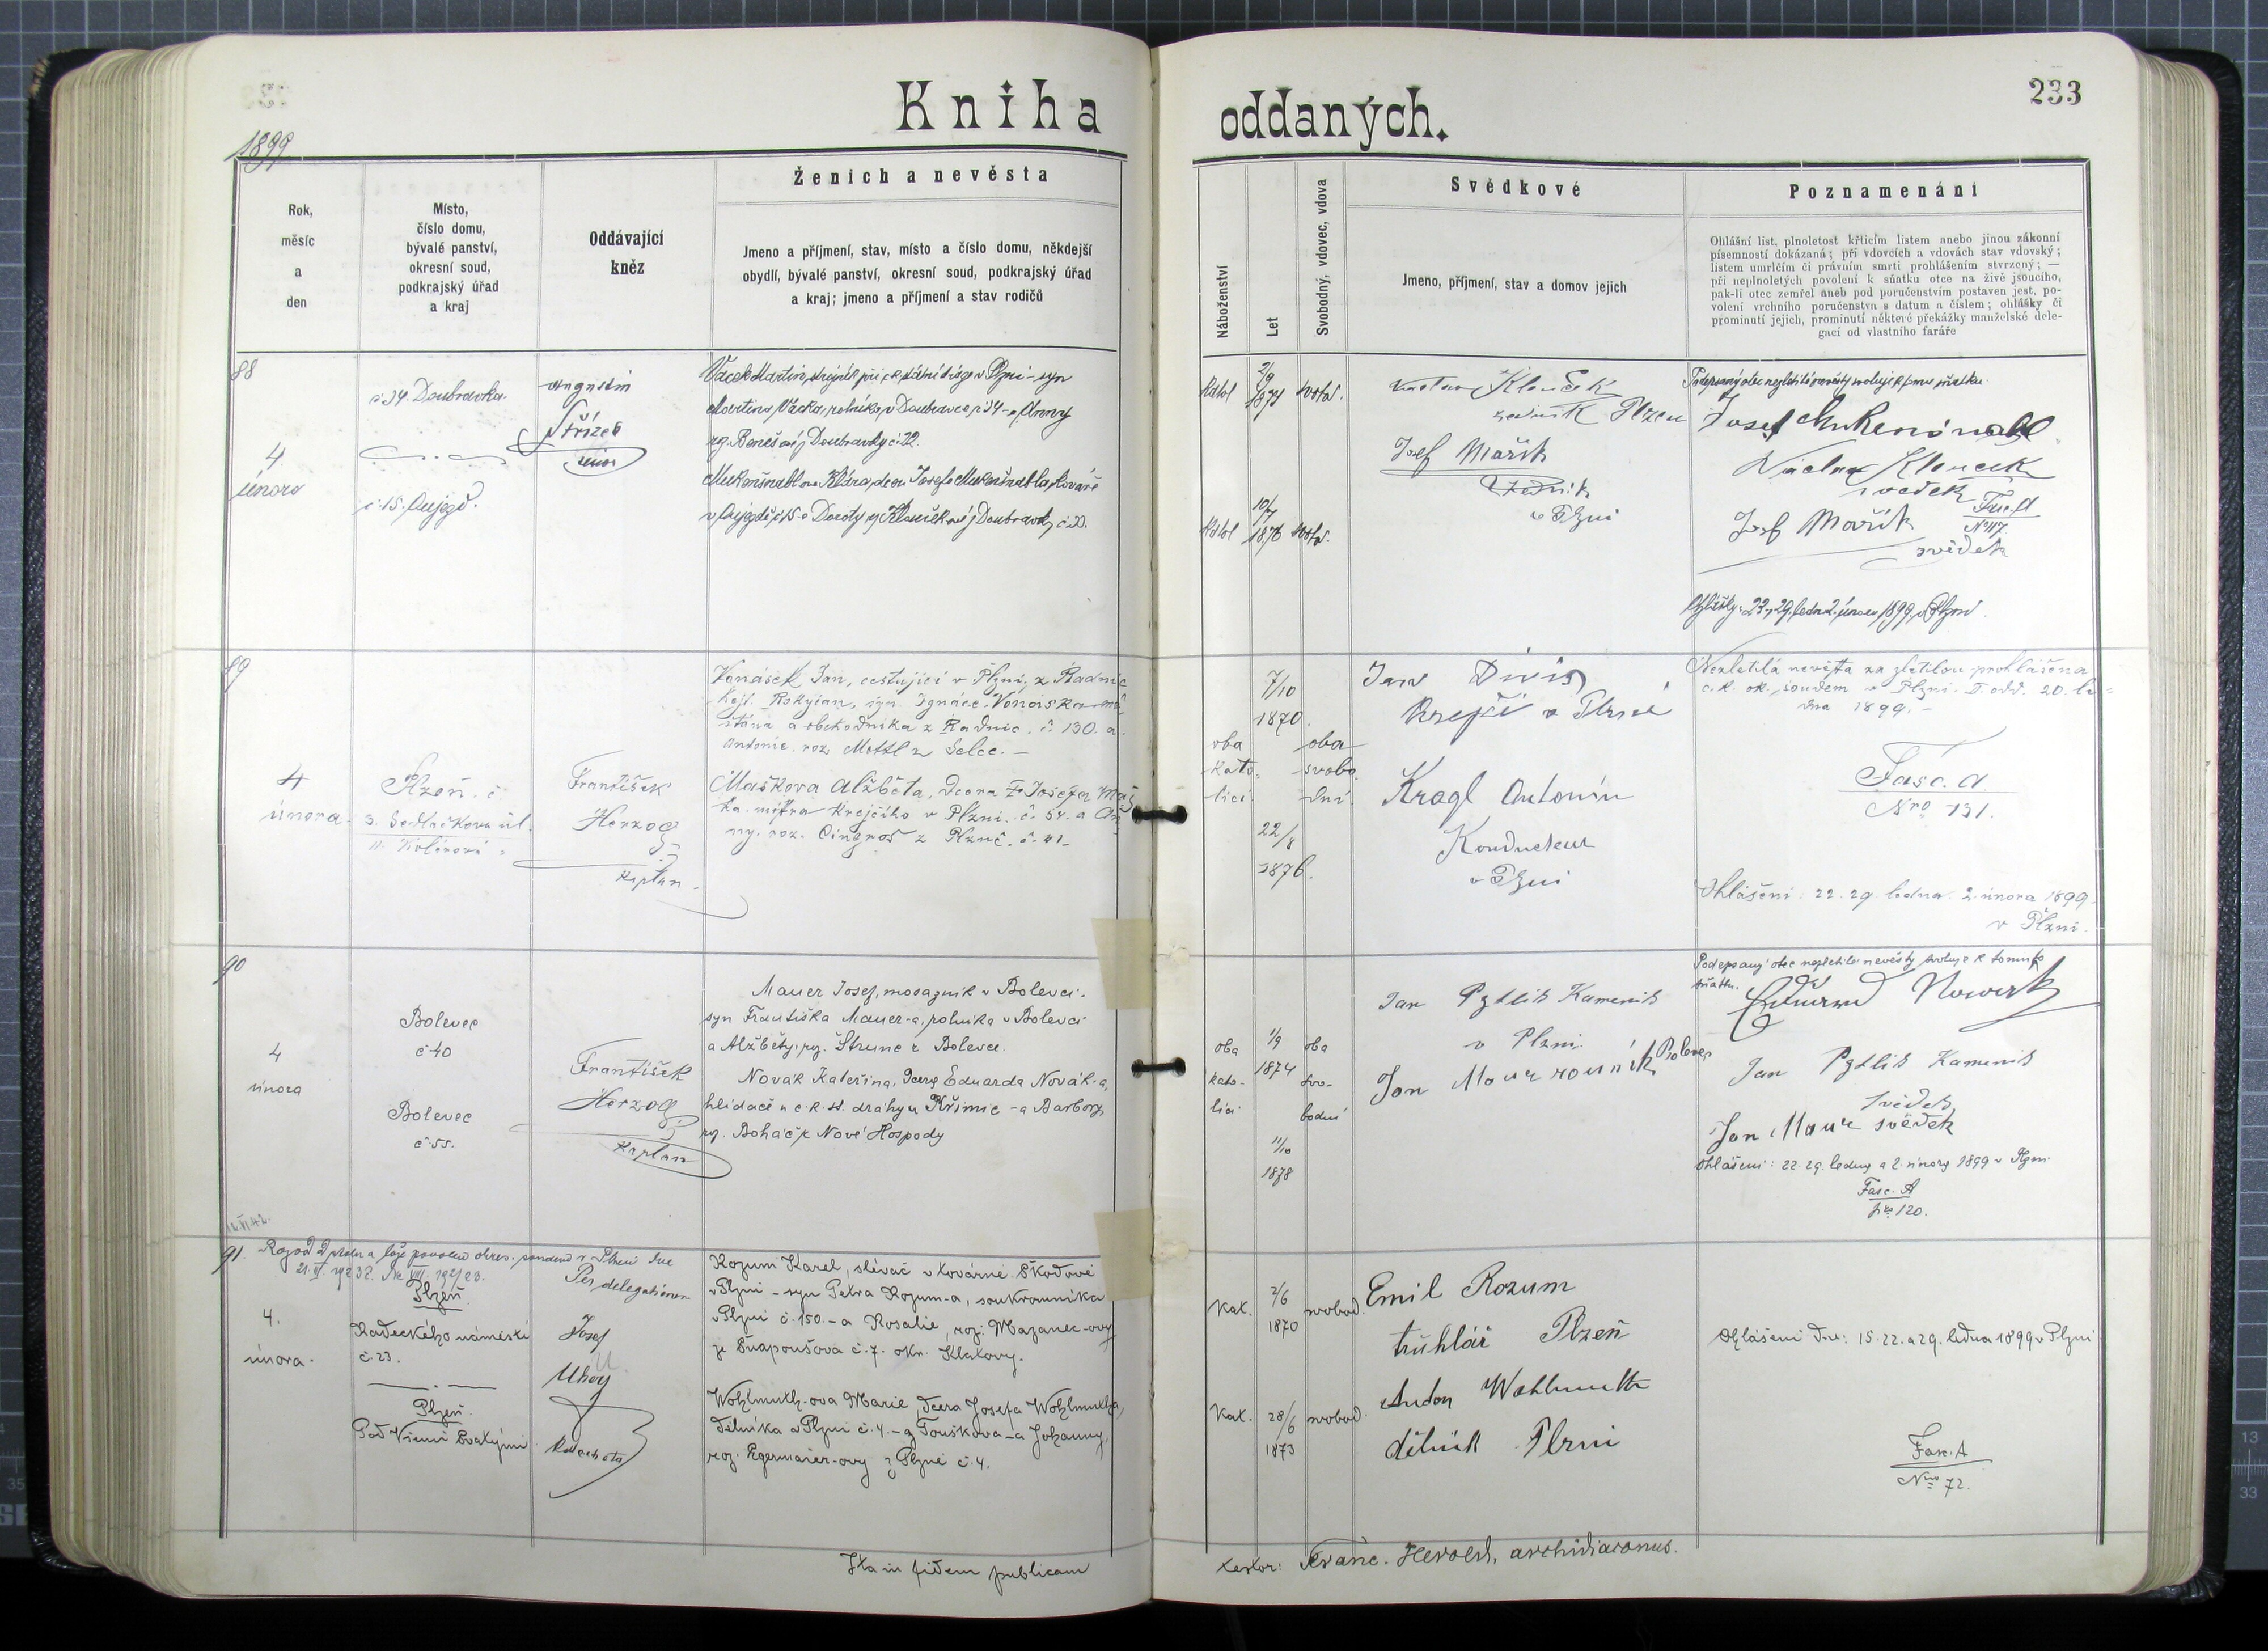 Kniha oddaných.
233
1899
Ženich a nevěsta
Svědkové
Poznamenání
Rok,
měsíc
a
den
Místo,
číslo domu,
bývalé panství,
okresní soud,
podkrajský úřad
a kraj
Oddávající
kněz
Jmeno a příjmení, stav, místo a číslo domu, někdejší
obydlí, bývalé panství, okresní soud, podkrajský úřad
a kraj; jmeno a příjmení a stav rodičů
Náboženství
Let
Svobodný, vdovec, vdova
Jmeno, příjmení, stav a domov jejich
Ohlášní list, plnoletost křticím listem anebo jinou zákonní
písemností dokázaná; při vdovcích a vdovách stav vdovský;
listem umrlčím či právním smrti prohlášením stvrzený; —
při neplnoletých povolení k sňatku otce na živě jsoucího,
pak-li otec zemřel aneb pod poručenstvím postaven jest, po-
volení vrchního poručenstva s datum a číslem; ohlášky či
prominutí jejich, prominutí některé překážky manželské dele-
gací od vlastního faráře
88
4
února
č 34 Doubravka
č. 15.
Augustin
Střízek
senior
Vacek Martin, při c.k. státní dráze v Plzni - syn
Martina Vacka, rolníka v Doubravce č 34 - a Anny
roz. Benešové z Doubravky č. 22.
Klára, dcera Josefa kováře
č 15 - a Doroty roz. Kloučkové z Doubravky č. 22.
Katol
2/9
1873
svob.
Katol
10/7
1876
svob.
Václav Klouček
Plzeň
Josef Mařík
v Plzni
Podepsaný otec nezletilé nevěsty svoluje k tomu sňatku.
Josef
Václav Klouček
svědek
Fasc. A
No 117.
Josef Mařík
svědek
Ohlášky: 22, 29. ledna 2. února 1899 v Plzni
89
4
února.
Plzeň. č.
3. Sedláčkova ul.
11.
František
Herzog
kaplan
Vonásek Jan, cestující v Plzni, z Radnic
hejt. Rokycan, syn Ignáce
a obchodníka z Radnic. č. 130. a
Antonie. roz. z Selce. —
Maškova Alžběta, dcera Josefa Maš
ka. mistra krejčího v Plzni. č. 54. a An
ny. roz. Cingroš z Plzně. č. 41 –
oba
kato-
líci
7/10
1870.
22/8
1876.
oba
svobo
dní.
Jan Diviš
Krejčí v Plzni
Kragl Antonín
Kondukteur
v Plzni
Nezletilá nevěsta za zletilou prohlášena
c. k. ok. soudem v Plzni. 20. le-
dna 1899. –
Fasc. A.
Nro 131.
Ohlášení: 22. 29. ledna. 2. února 1899.
v Plzni.
90
4
února
Bolevec
č 40
Bolevec
č 55.
František
Herzog
Kaplan
Mauer Josef, mosazník v Bolevci.
syn Františka Mauer-a, rolníka v Bolevci
a Alžběty, roz. Štrunc z Bolevce.
Novák Kateřina, dcera Eduarda Novák-a,
hlídače u c. k. st. dráhy u Křimic - a Barbory,
roz. Boháč z Nové Hospody
oba
kato-
líci
1/9
1874
11/10
1878
oba
svo-
bodní
Jan Pytlík Kameník
v Plzni
Jan Maur rolník Bolevec
Podepsaný otec nezletilé nevěsty svoluje k tomuto
sňatku.
Eduard Nowak
Jan Pytlík Kameník
svědek
Jan Maur svědek
Ohlášení: 22. 29. ledna a 2. února 1899 v Plzni.
Fasc. A
Nro 120.
91.
Rozvod od stolu a lože povolen okres. soudem v Plzni dne
Plzeň.
4.
února.
Radeckého náměstí
č. 23.
Plzeň.
Pod Všemi Svatými
Per delegationem
Josef
Uhry
Rozum Karel, slévač v továrně Škodově
v Plzni - syn Petra Rozum-a, soukromníka
v Plzni č. 150. - a Rosalie, roz. Mazanec-ovy
ze Šnapoušova č. 7. okr. Klatovy.
Wohlmuth-ova Marie, dcera Josefa Wohlmutha,
dělníka v Plzni č. 4. - z Touškova - a Johanny,
roz. Egermaier-ovy z Plzně č. 4.
Kat.
2/6
1870
svobod.
Kat.
28/6
1873
svobod.
Emil Rozum
truhlář Plzeň
Anton Wohlmuth
dělník Plzni
Ohlášení dne: 15. 22. a 29. ledna 1899 v Plzni
Fasc. A
Nro 72.
Ita in fidem publicam
testor: Franc. Herold, archidiaconus.